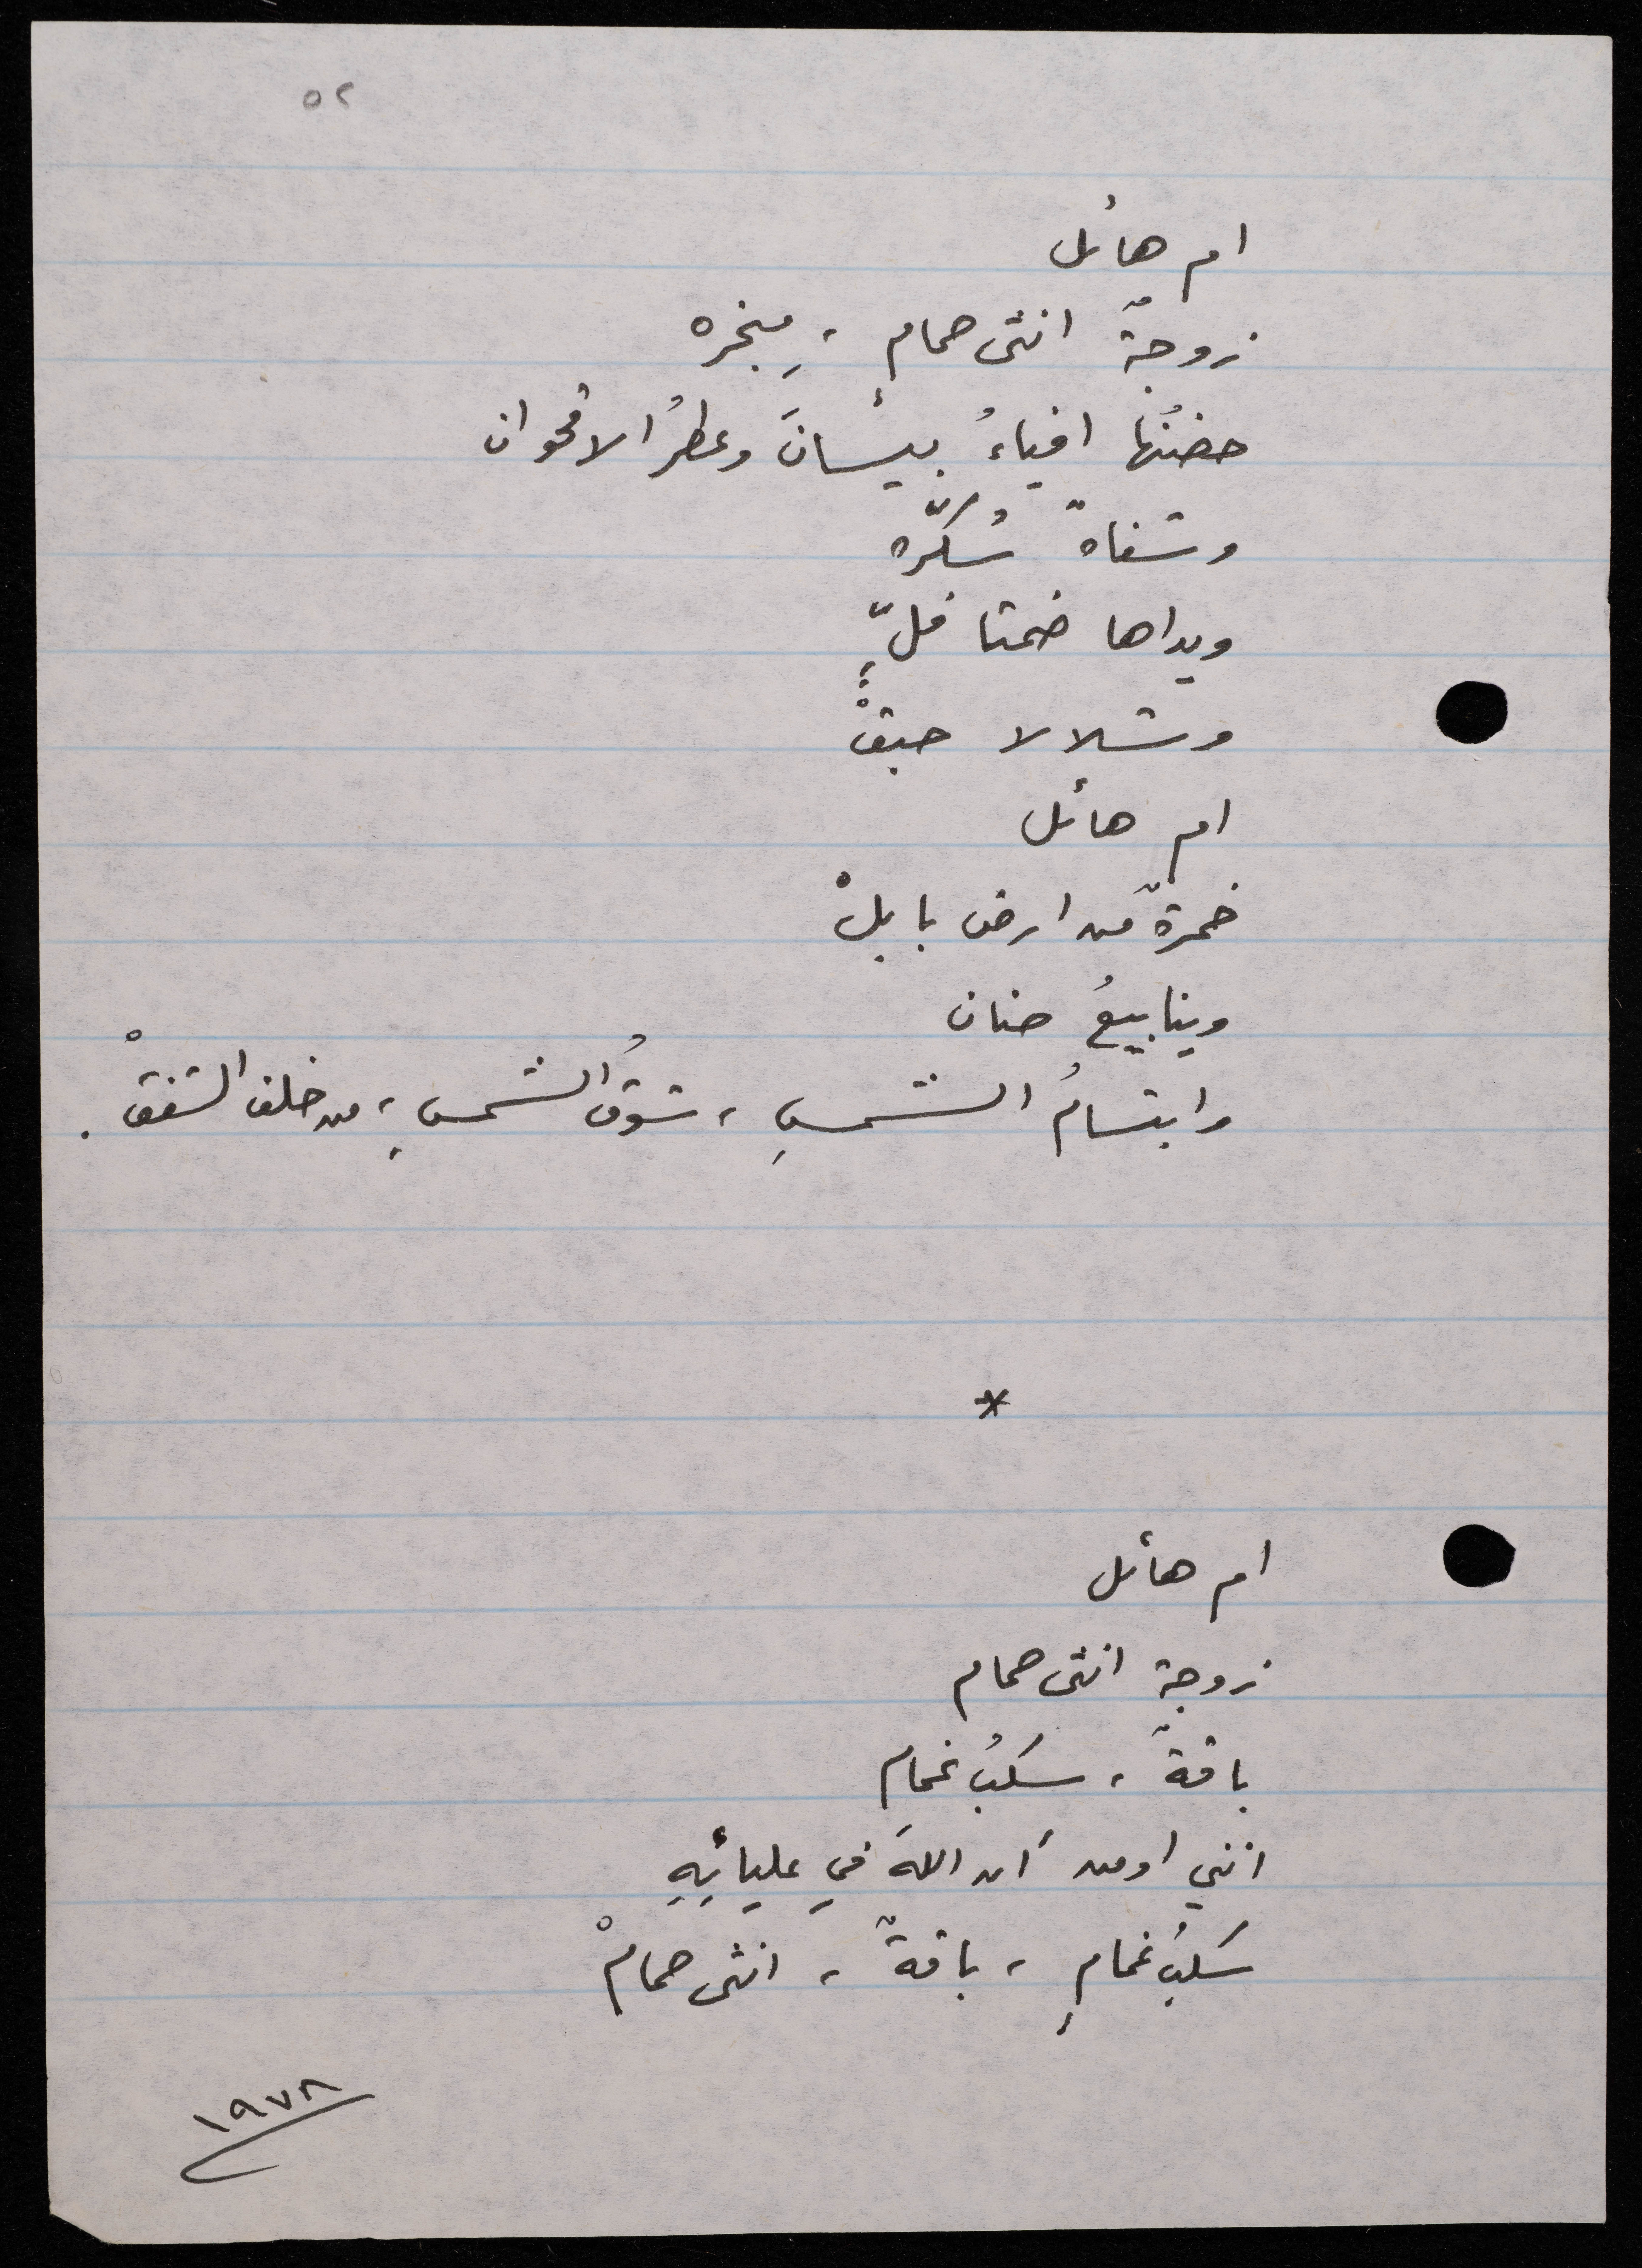 ٥٢
ام هائل
زوجةٌ انثى حمامٍ ، مِبخره
حضنُها افياءُ بيْسانَ وعطرُ الاقحوان
وشفاهٌ سُكّره
ويداها ضمتا فلٍّ
وشلالا حبقْ
ام هائل
خمرةٌ من ارض بابلْ
وينابيعُ حنان
وابتسامُ الشمسِ ، شوقُ الشمسِ ، من خلف الشفقْ .
*
ام هائل
زوجة انثى حمام
باقةٌ ، سَكبُ غمام
انني اومن أن اللهَ في عليائِهِ
سَكبُ غمامٍ ، باقةٌ ، انثى حمامْ
١٩٧٨